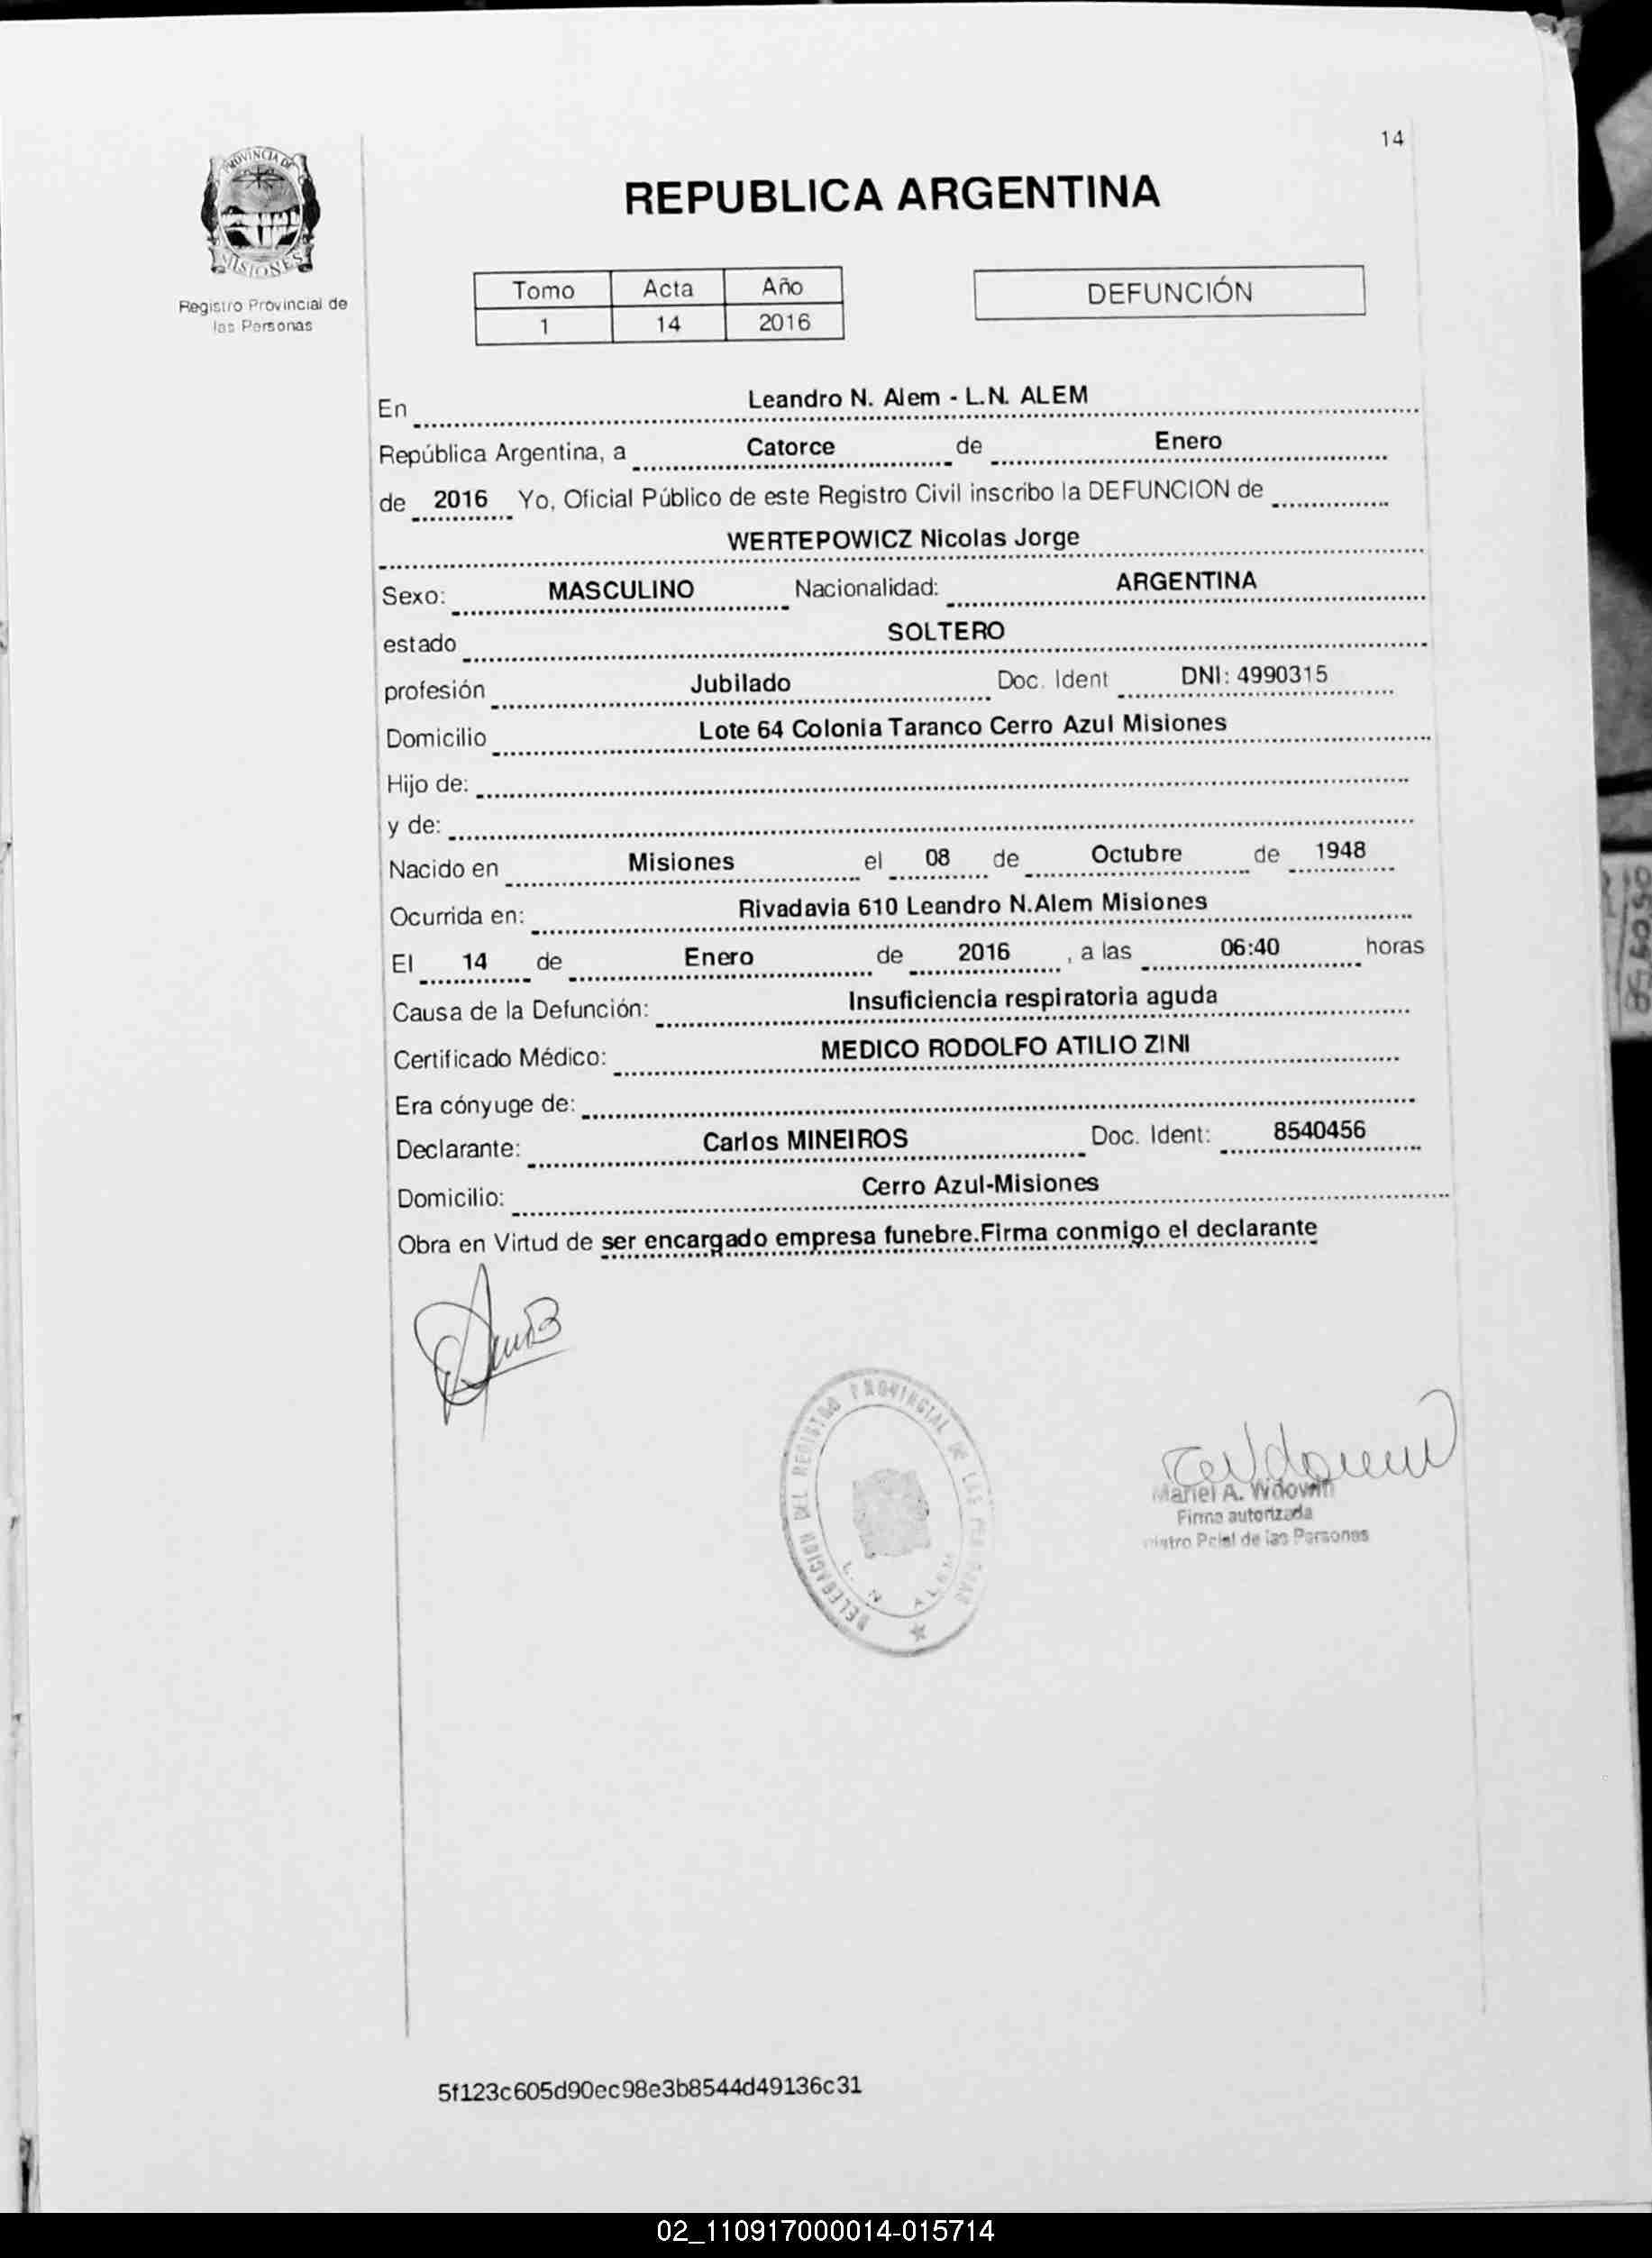 14
PROVINCIA DE
MISIONES
Registro Provincial de
las Personas
REPUBLICA ARGENTINA
Tomo Acta Año
1 14 2016
DEFUNCIÓN
En Leandro N. Alem - L.N. ALEM
República Argentina, a Catorce de Enero
de 2016 Yo, Oficial Público de este Registro Civil inscribo la DEFUNCION de
WERTEPOWICZ Nicolas Jorge
Sexo: MASCULINO Nacionalidad: ARGENTINA
estado SOLTERO
profesión Jubilado Doc. Ident DNI: 4990315
Domicilio Lote 64 Colonia Taranco Cerro Azul Misiones
Hijo de:
y de:
Nacido en Misiones el 08 de Octubre de 1948
Ocurrida en: Rivadavia 610 Leandro N.Alem Misiones
El 14 de Enero de 2016 , a las 06:40 horas
Causa de la Defunción: Insuficiencia respiratoria aguda
Certificado Médico: MEDICO RODOLFO ATILIO ZINI
Era cónyuge de:
Declarante: Carlos MINEIROS Doc. Ident: 8540456
Domicilio: Cerro Azul-Misiones
Obra en Virtud de ser encargado empresa funebre.Firma conmigo el declarante
DELEGACION DEL REGISTRO PROVINCIAL DE LAS
L. N. ALEM
A.
Firma autorizada
de las Personas
5f123c605d90ec98e3b8544d49136c31
02_110917000014-015714